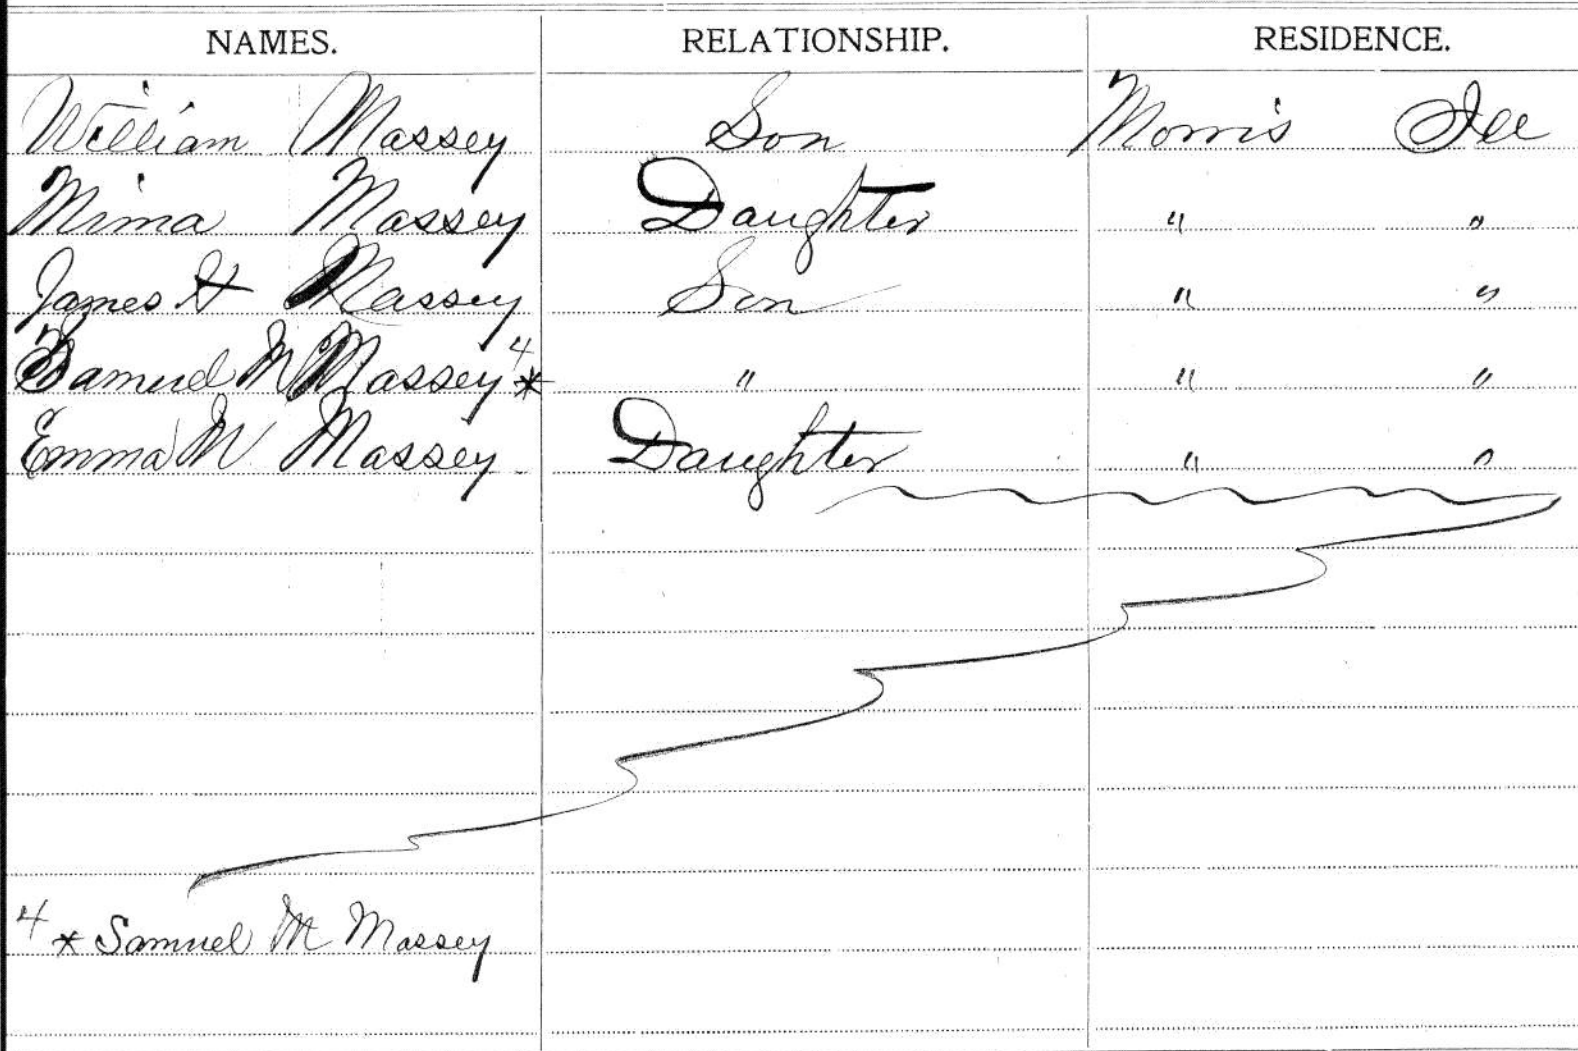 NAMES. RELATIONSHIP. RESIDENCE.
William Massey Son Morris Ill
Mima Massey Daughter " "
James H Massey Son " "
Samuel M Massey 4* " " "
Emma M Massey Daughter " "
4 * Samuel M Massey